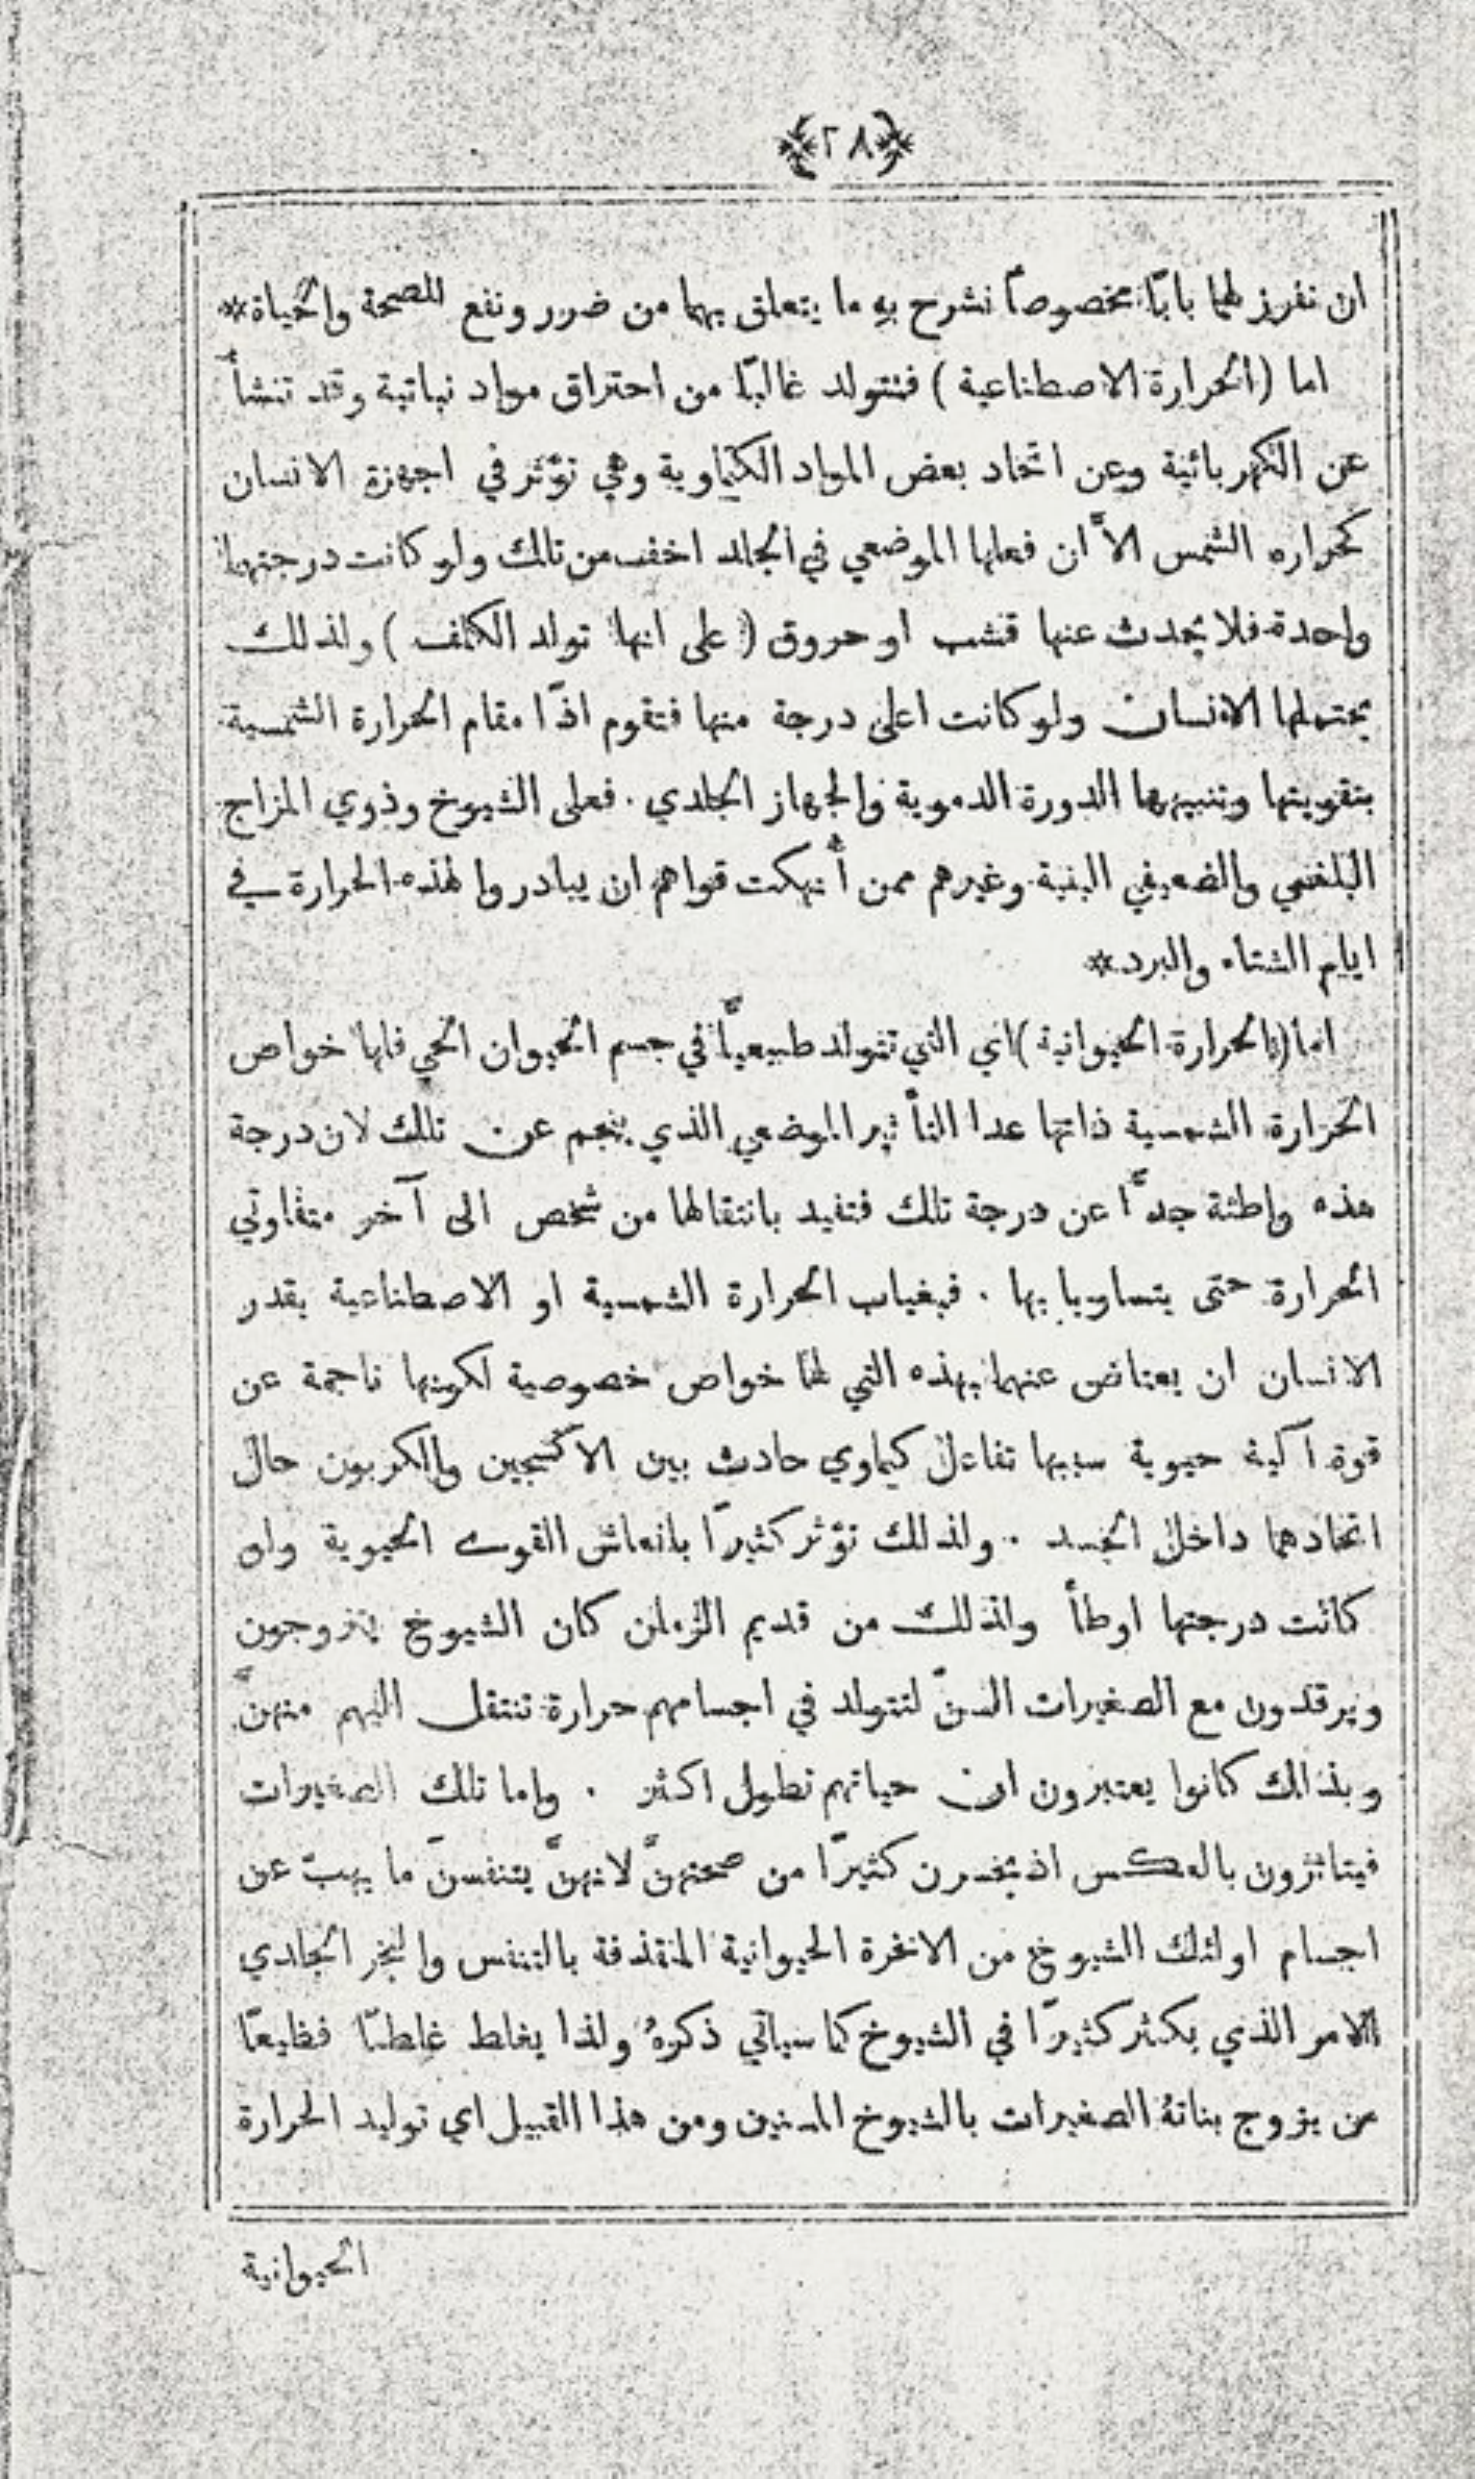 ﴿٢٨﴾
ان نفرز لهما بابًا مخصوصاً نشرح بهِ ما يتعلق بهما من ضرر ونفع للصحة والحياة*
اما (الحرارة الاصطناعية) فتتولد غالبًا من احتراق مواد نباتية وقد تنشأ
عن الكهربائية وعن اتحاد بعض المواد الكيماوية وهي تؤثر في اجهزة الانسان
كحراره الشمس الاَّ ان فعلها الموضعي في الجلد اخف من تلك ولو كانت درجتهما
واحدة فلا يحدث عنها قشب او حروق (على انها تولد الكلف) ولذلك
يحتملها الانسان ولو كانت اعلى درجة منها فتقوم اذًا مقام الحرارة الشمسية
بتقويتها وتنبيهها الدورة الدموية والجهاز الجلدي . فعلى الشيوخ وذوي المزاج
البلغمي والضعيفي البنية وغيرهم ممن أُنهكت قواهم ان يبادروا لهذه الحرارة في
ايام الشتاء والبرد*
اما (الحرارة الحيوانية) اي التي تتولد طبيعيًّا في جسم الحيوان الحي فلها خواص
الحرارة الشمسية ذاتها عدا التأثير الموضعي الذي ينجم عن تلك لان درجة
هذه واطئة جدًّا عن درجة تلك فتفيد بانتقالها من شخص الى آخر متفاوتي
الحرارة حتى يتساويا بها . فبغياب الحرارة الشمسية او الاصطناعية يقدر
الانسان ان يعتاض عنهما بهذه التي لها خواص خصوصية لكونها ناجمة عن
قوة آلية حيوية سببها تفاعل كيماوي حادث بين الاكسجين والكربون حال
اتحادهما داخل الجسد . ولذلك تؤثر كثيرًا بانعاش القوى الحيوية وان
كانت درجتها اوطأ ولذلك من قديم الزمان كان الشيوخ يتزوجون
ويرقدون مع الصغيرات السنّ لتتولد في اجسامهم حرارة تنتقل اليهم منهنَّ
وبذلك كانوا يعتبرون ان حياتهم تطول اكثر . واما تلك الصغيرات
فيتاثرون بالعكس اذ يخسرن كثيرًا من صحتهنَّ لانهنَّ يتنفسنَ ما يهبّ عن
اجسام اولئك الشيوخ من الابخرة الحيوانية المنقذفة بالتنفس والبخر الجلدي
الامر الذي يكثر كثيرًا في الشيوخ كما سياتي ذكرهُ ولذا يغلط غلطًا فظيعًا
من يزوج بناتهُ الصغيرات بالشيوخ المسنين ومن هذا القبيل اي توليد الحرارة
الحيوانية